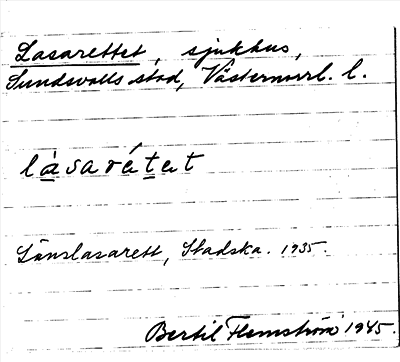 Lasarettet, sjukhus,
Sundsvalls stad, Västernorrl. l.
làsarétet
Länslasarett, Stadska. 1935.
Bertil Flemström 1945.